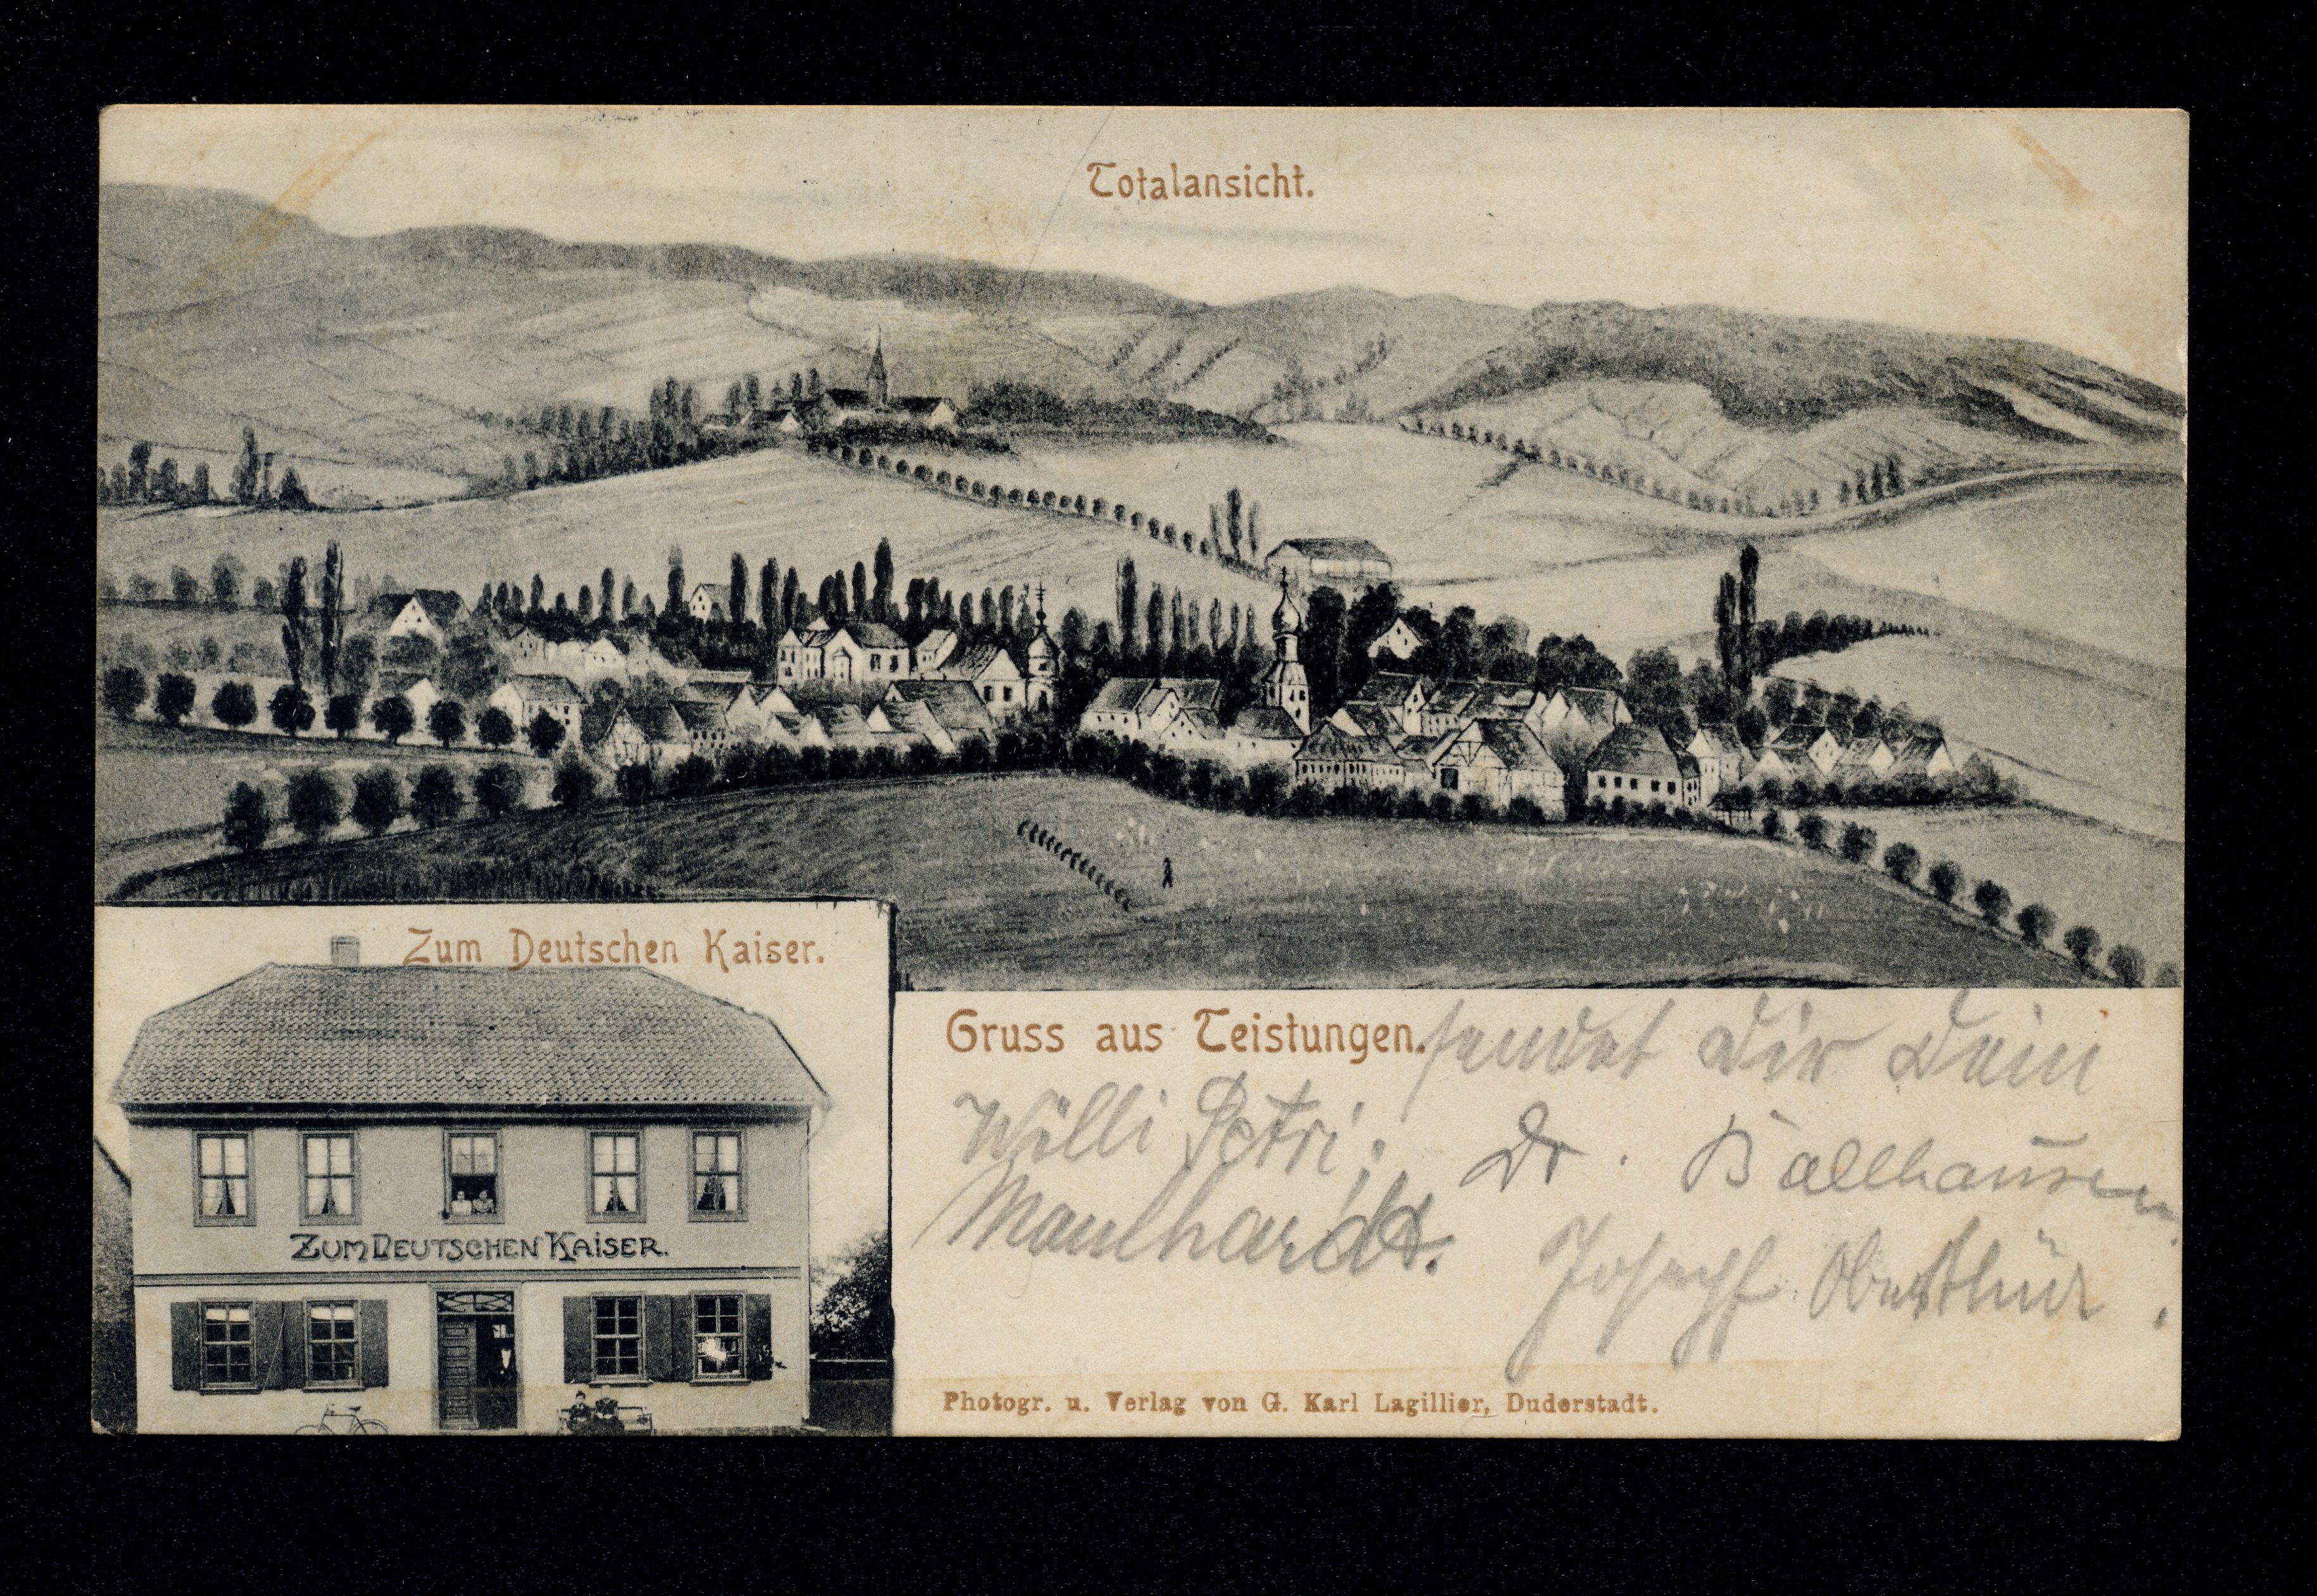 Totalansicht.
Zum Deutschen Kaiser.
ZUM DEUTSCHEN KAISER.
Gruss aus Teistungen. sendet Dir Dein
Willi Petri;
Dr. Ballhausen
Maulhardt.
Joseph Oberthür.
Photogr. u. Verlag von G. Karl Lagillier, Duderstadt.